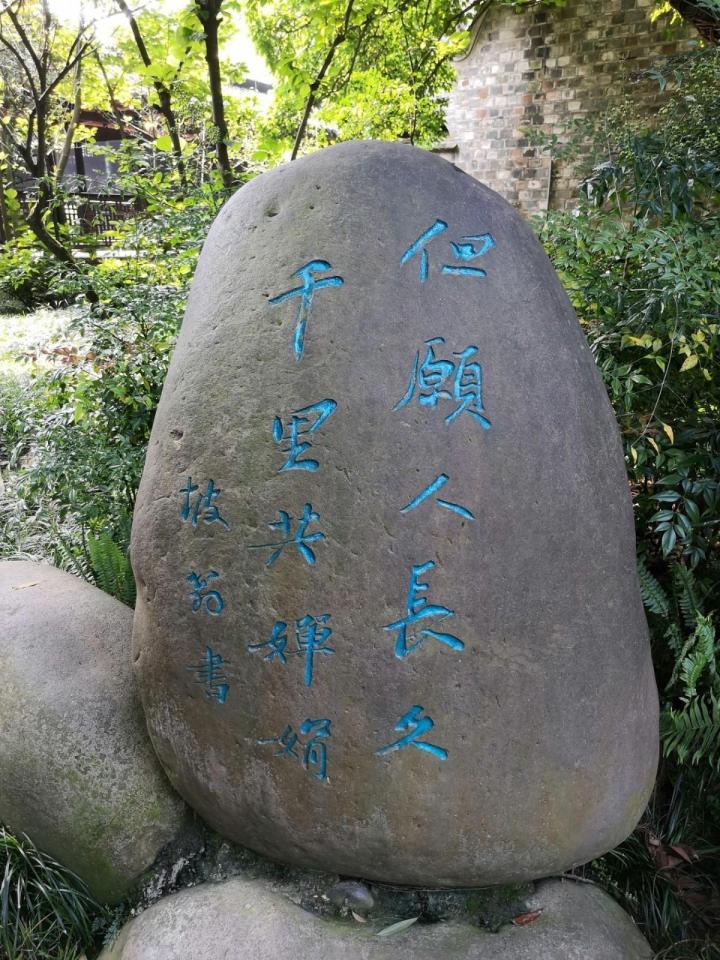 但願人長久
千里共嬋娟
坡翁書